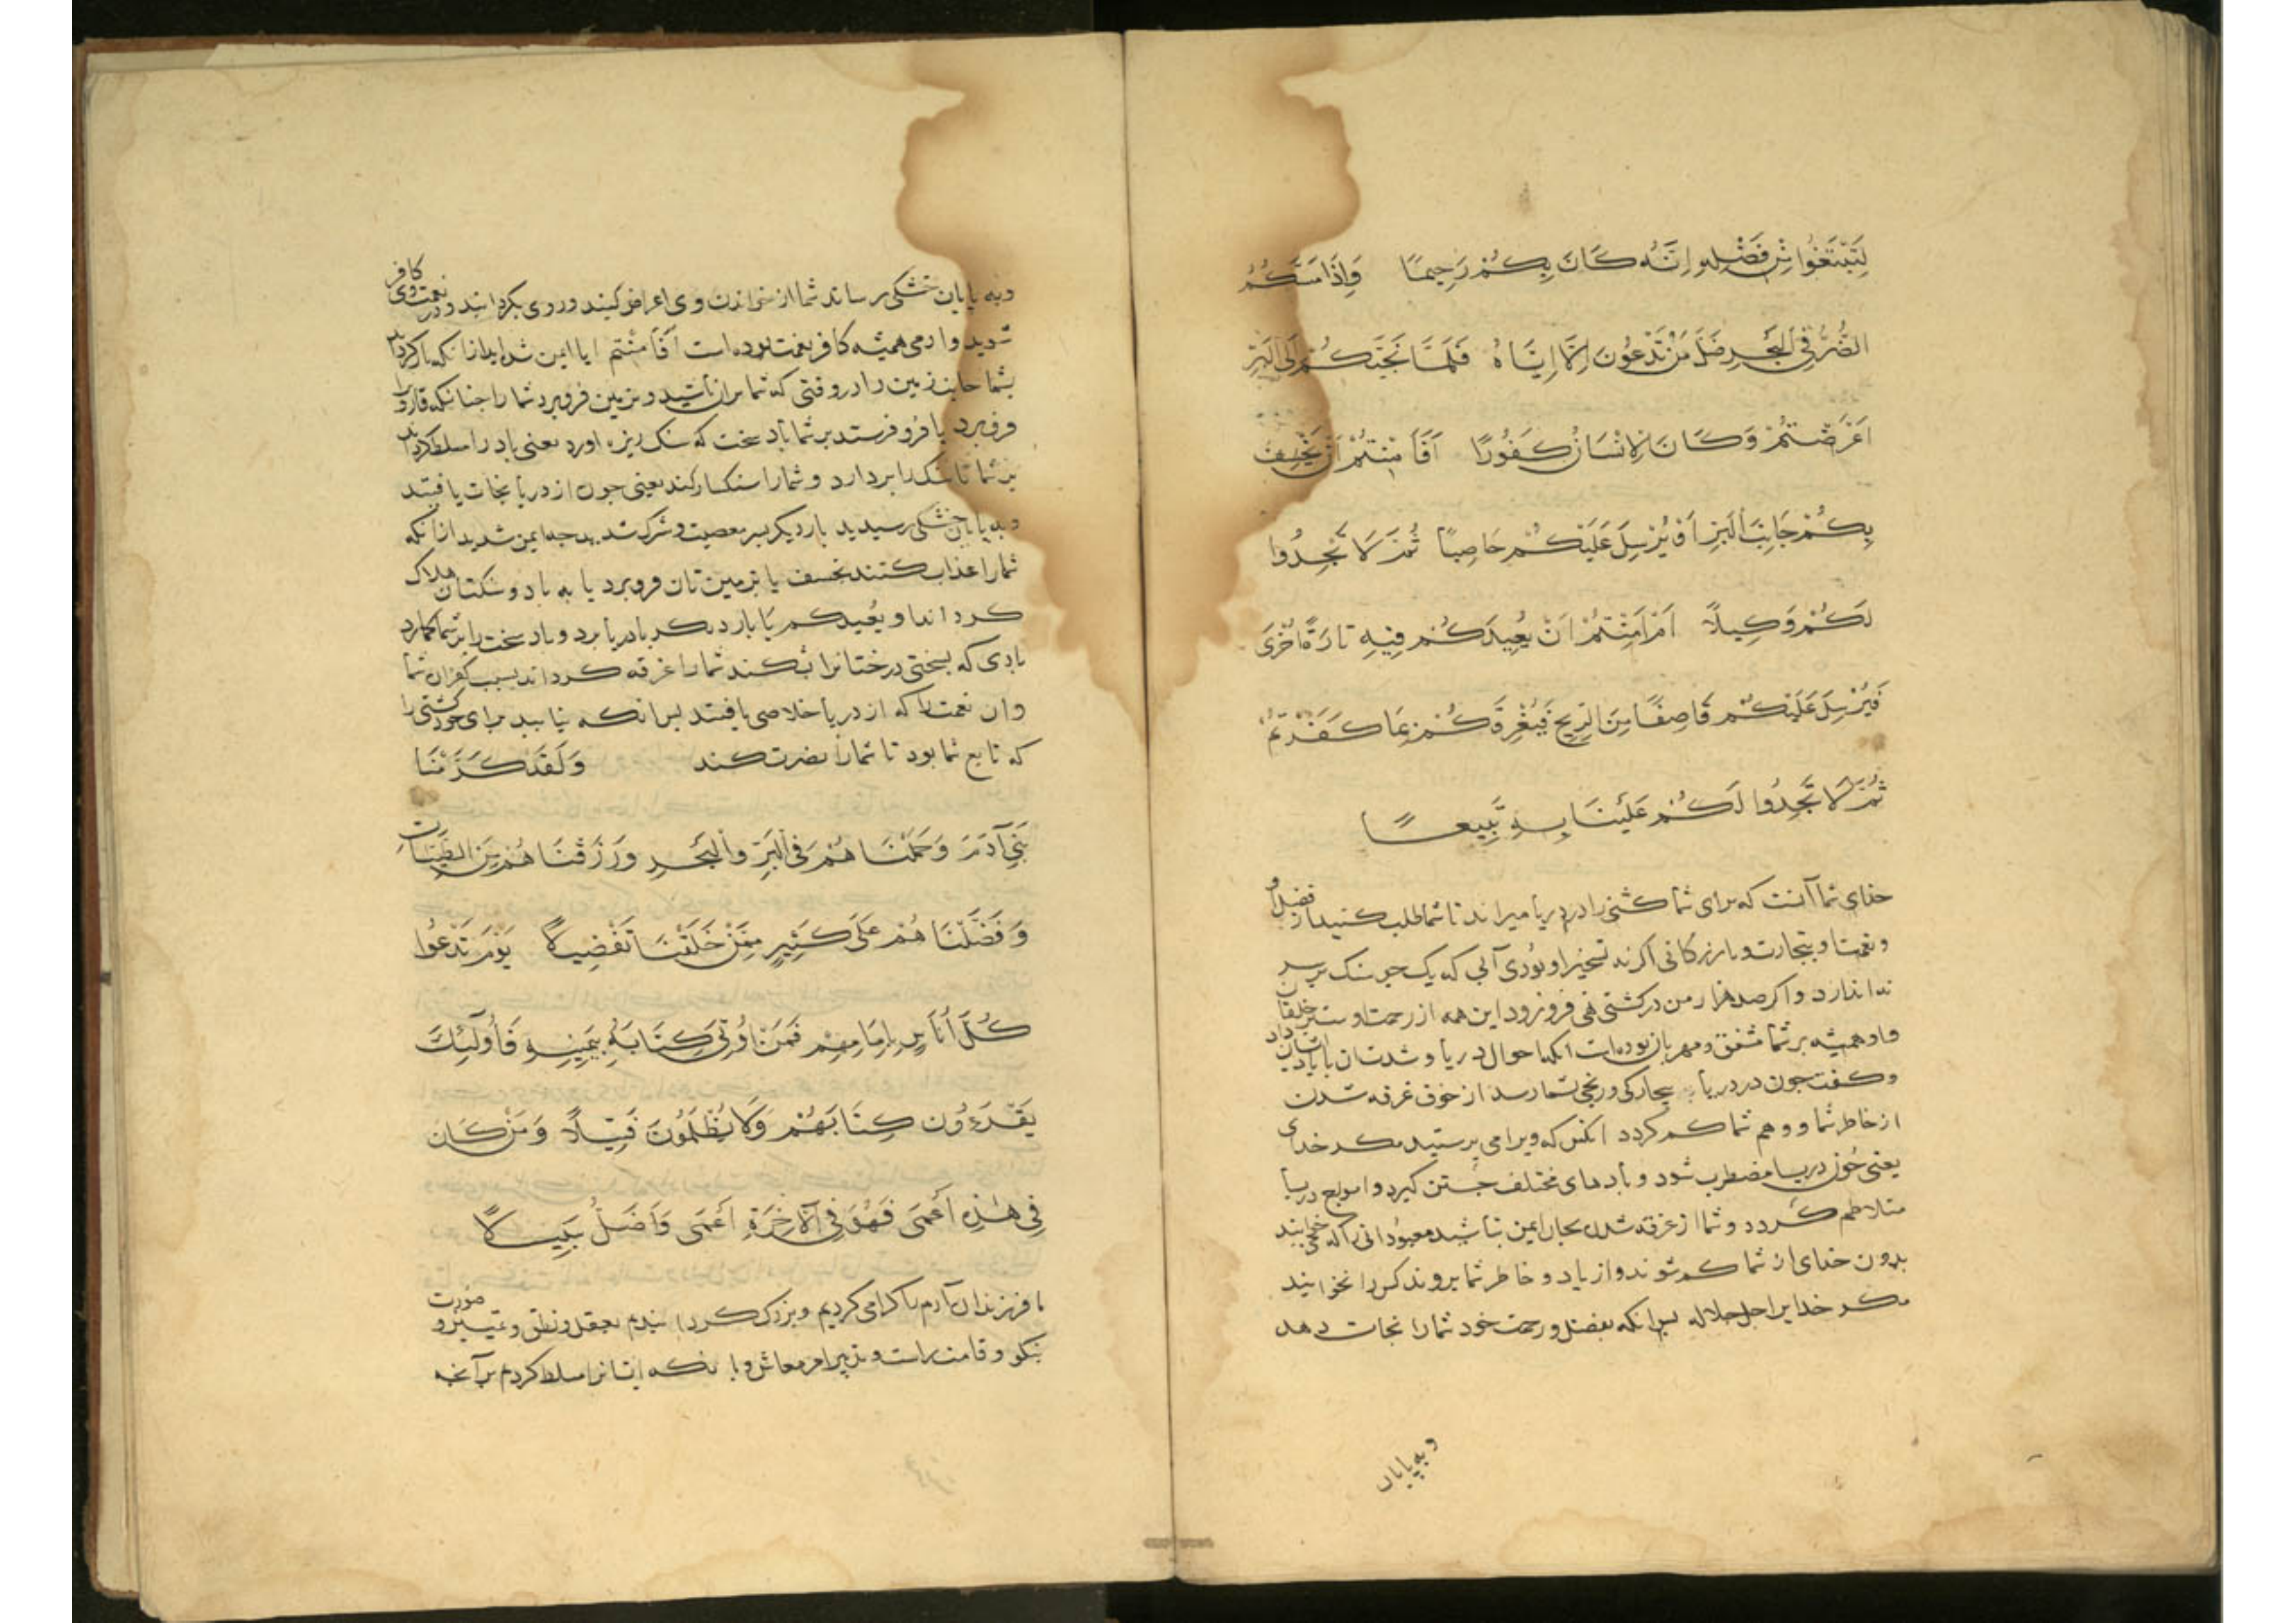 لِتَبْتَغُوا مِنْ فَضْلِهِ اِنَّهُ كَانَ بِكُمْ رَحِيمًا وَاِذَا مَسَّكُمُ
الضُّرُّ فِي الْبَحْرِ ضَلَّ مَنْ تَدْعُونَ اِلَّا اِيَّاهُ فَلَمَّا نَجَّيٰكُمْ اِلَى الْبَرِّ
اَعْرَضْتُمْ وَكَانَ الْاِنْسَانُ كَفُورًا اَفَاَمِنْتُمْ اَنْ يَخْسِفَ
بِكُمْ جَانِبَ الْبَرِّ اَوْ يُرْسِلَ عَلَيْكُمْ حَاصِبًا ثُمَّ لَا تَجِدُوا
لَكُمْ وَكِيلًا اَمْ اَمِنْتُمْ اَنْ يُعِيدَكُمْ فِيهِ تَارَةً اُخْرَى
فَيُرْسِلَ عَلَيْكُمْ قَاصِفًا مِنَ الرِّيحِ فَيُغْرِقَكُمْ بِمَا كَفَرْتُمْ
ثُمَّ لَا تَجِدُوا لَكُمْ عَلَيْنَا بِهِ تَبِيعًا
خدای شما آنست که برای شما کشتی را در دریا میراند تا شما طلب کنید از فضل او
ونعمت او بتجارت وبازرکانی اکر نه تسخیر او بودی آبی که یک جو سنک بر سر
ندارد واکر صد هزار من در کشتی نهی فرو نرود این همه از رحمت اوست بر خلقان
واو همیشه بر شما مشفق ومهربان بوده است انکه احوال دریا وشدتان با یادشان داد
وکفت جون در دریا بیجارکی ورنجی بشما رسد از خوف غرقه شدن
از خاطر شما ووهم شما کم کردد انکس که ویرا می پرستید مکر خدای
یعنی جون دریا مضطرب شود وبادهای مختلف جستن کیرد وامواج دریا
متلاطم کردد وشما از غرقه شدن بجان ایمن نباشید معبودانی را که میخوانید
بدون خدای از شما کم شوند واز یاد وخاطر شما بروند کس را نخوانید
مکر خدایرا جل جلاله پس انکه بفضل ورحمت خود شما را نجات دهد
وبه پایان
وبه پایان خشکی رساند شما از خواندن وی اعراض کنید وروی بکردانید ودر نعمت وی کافر
شدید وآدمی همیشه کافر نعمت بوده است اَفَاَمِنْتُم ایا ایمن شده اید از انکه باز کرداند
بشما جانب زمین را در وقتی که شما بران باشید وبزمین فرو برد شما را جنانکه قارون را
فرو برد یا فرو فرستد بر شما باد سخت که سنک ریزه اورد یعنی باد را مسلط کرداند
بر شما تا سنک را بردارد وشما را سنکسار کند یعنی جون از دریا نجات یافتید
وبه پایان خشکی رسیدید بار دیکر بسر معصیت وشرک شدید بجه ایمن شدید از انکه
شما را عذاب کنند بخسف یا بزمین تان فرو برد یا به باد وسنکتان هلاک
کرداند او یُعیدکم یا بار دیکر بدریا برد وباد سخت را بر شما کمارد
بادی که بسختی درختانرا بشکند شما را غرقه کرداند بسبب کفران شما
وان نعمت را که از دریا خلاصی یافتید پس انکه نیابید برای خود کسی را
که تابع شما بود تا شما را نصرت کند وَلَقَدْ كَرَّمْنَا
بَنِي آدَمَ وَحَمَلْنَاهُمْ فِي الْبَرِّ وَالْبَحْرِ وَرَزَقْنَاهُمْ مِنَ الطَّيِّبَاتِ
وَفَضَّلْنَاهُمْ عَلَى كَثِيرٍ مِمَّنْ خَلَقْنَا تَفْضِيلًا يَوْمَ نَدْعُوا
كُلَّ اُنَاسٍ بِاِمَامِهِمْ فَمَنْ اُوتِيَ كِتَابَهُ بِيَمِينِهِ فَاُولَٓئِكَ
يَقْرَءُونَ كِتَابَهُمْ وَلَا يُظْلَمُونَ فَتِيلًا وَمَنْ كَانَ
فِي هٰذِهِ اَعْمَى فَهُوَ فِي الْآخِرَةِ اَعْمَى وَاَضَلُّ سَبِيلًا
ما فرزندان آدم را کرامی کردیم وبزرک کردانیدیم بعقل ونطق وتمییز وصورت
نیکو وقامت راست وتدبیر امر معاش وبا انکه ایشانرا مسلط کردیم بر آنچه